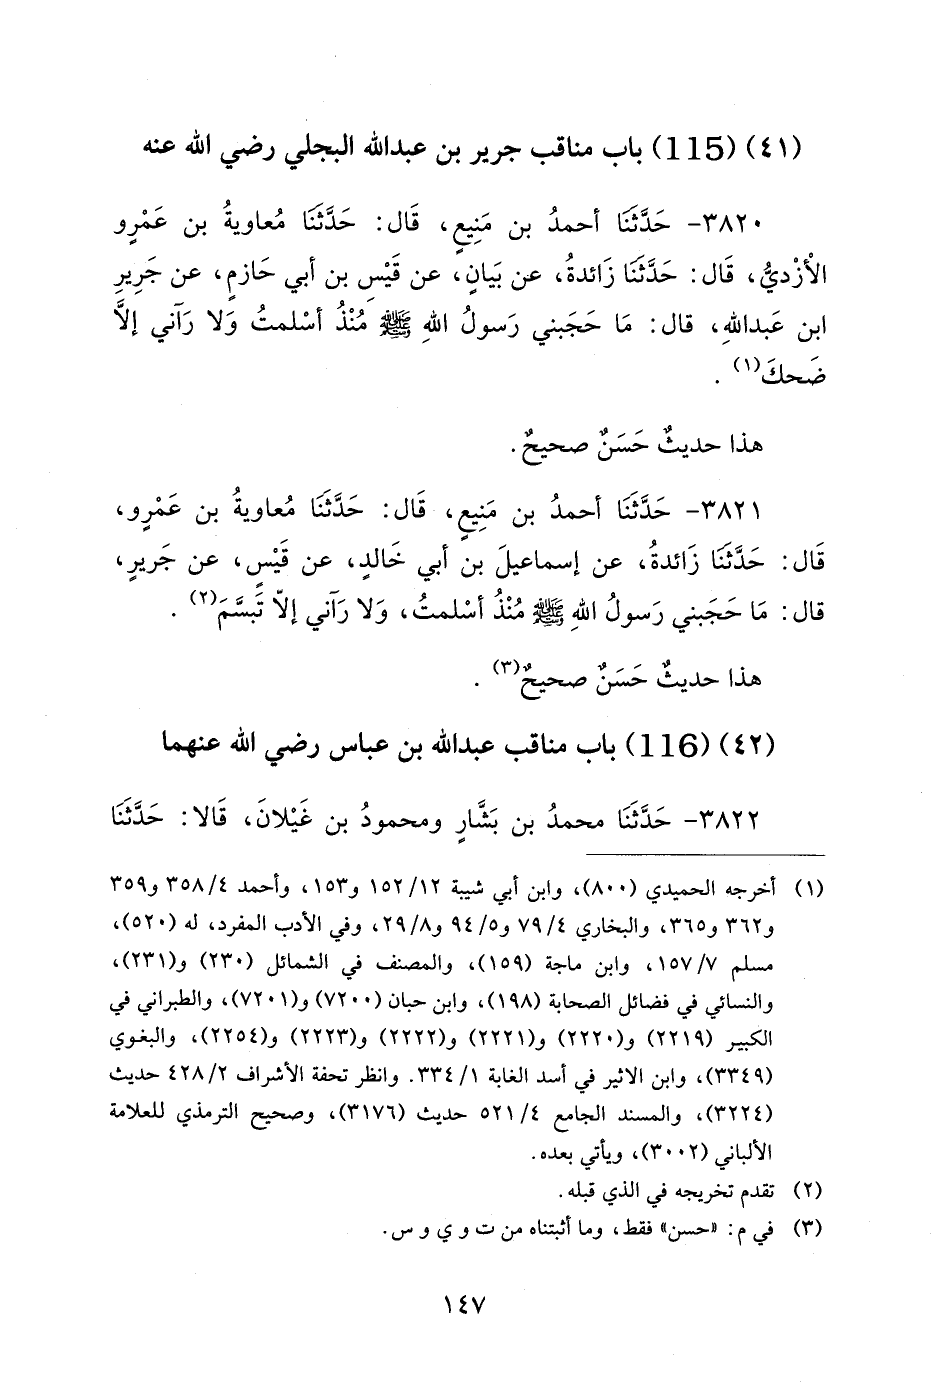 (٤١) (115) باب مناقب جرير بن عبدالله البجلي رضي الله عنه
٣٨٢٠- حَدَّثَنَا أحمدُ بن مَنِيعٍ، قَال: حَدَّثَنَا مُعاويةُ بن عَمْرٍو
الأَزْديُّ، قَال: حَدَّثَنَا زَائدةُ، عن بَيانٍ، عن قَيْسِ بن أبي حَازمٍ، عن جَرِيرِ
ابن عَبداللهِ، قال: مَا حَجَبني رَسولُ اللهِ ﷺ مُنْذُ أسْلمتُ وَلا رَآني إلاَّ
ضَحكَ(١) .
هذا حديثٌ حَسَنٌ صحيحٌ.
٣٨٢١- حَدَّثَنَا أحمدُ بن مَنِيعٍ، قَال: حَدَّثَنَا مُعاويةُ بن عَمْرٍو،
قَال: حَدَّثَنَا زَائدةُ، عن إسماعيلَ بن أبي خَالدٍ، عن قَيْسٍ، عن جَريرٍ،
قال: مَا حَجَبني رَسولُ اللهِ ﷺ مُنْذُ أسْلمتُ، وَلا رَآني إلاّ تَبسَّمَ(٢) .
هذا حديثٌ حَسَنٌ صحيحٌ(٣) .
(٤٢) (116) باب مناقب عبدالله بن عباس رضي الله عنهما
٣٨٢٢- حَدَّثَنَا محمدُ بن بَشَّارٍ ومحمودُ بن غَيْلانَ، قَالا: حَدَّثَنَا
(١) أخرجه الحميدي (٨٠٠)، وابن أبي شيبة ١٥٢/١٢ و١٥٣، وأحمد ٣٥٨/٤ و٣٥٩
و٣٦٢ و٣٦٥، والبخاري ٧٩/٤ و٩٤/٥ و٢٩/٨، وفي الأدب المفرد، له (٥٢٠)،
مسلم ١٥٧/٧، وابن ماجة (١٥٩)، والمصنف في الشمائل (٢٣٠) و(٢٣١)،
والنسائي في فضائل الصحابة (١٩٨)، وابن حبان (٧٢٠٠) و(٧٢٠١)، والطبراني في
الكبير (٢٢١٩) و(٢٢٢٠) و(٢٢٢١) و(٢٢٢٢) و(٢٢٢٣) و(٢٢٥٤)، والبغوي
(٣٣٤٩)، وابن الاثير في أسد الغابة ٣٣٤/١. وانظر تحفة الأشراف ٤٢٨/٢ حديث
(٣٢٢٤)، والمسند الجامع ٥٢١/٤ حديث (٣١٧٦)، وصحيح الترمذي للعلامة
الألباني (٣٠٠٢)، ويأتي بعده.
(٢) تقدم تخريجه في الذي قبله.
(٣) في م: «حسن» فقط، وما أثبتناه من ت و ي و س.
١٤٧